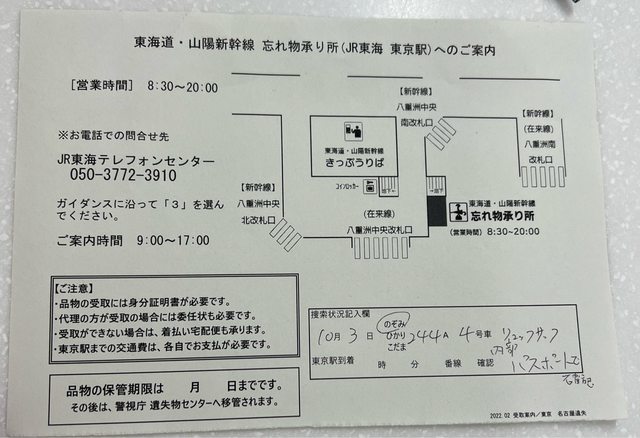 東海道・山陽新幹線 忘れ物承り所(JR東海 東京駅)へのご案内
[営業時間] 8:30～20:00
※お電話での問合せ先
JR東海テレフォンセンター
050-3772-3910
ガイダンスに沿って「3」を選ん
でください。
ご案内時間 9:00～17:00
【新幹線】
八重洲中央
南改札口
【新幹線】
(在来線)
八重洲南
改札口
東海道・山陽新幹線
きっぷうりば
コインロッカー
地下↓
【新幹線】
八重洲中央
北改札口
(在来線)
八重洲中央改札口
東海道・山陽新幹線
忘れ物承り所
(営業時間) 8:30～20:00
【ご注意】
・品物の受取には身分証明書が必要です。
・代理の方が受取の場合には委任状も必要です。
・受取ができない場合は、着払い宅配便も承ります。
・東京駅までの交通費は、各自でお支払が必要です。
品物の保管期限は 月 日までです。
その後は、警視庁 遺失物センターへ移管されます。
捜索状況記入欄
10月 3日 のぞみ ひかり こだま 244A 4号車 リュックサック
内部
パスポートで
東京駅到着 時 分 番線 確認
2022.02 受取案内/東京 名古屋遺失